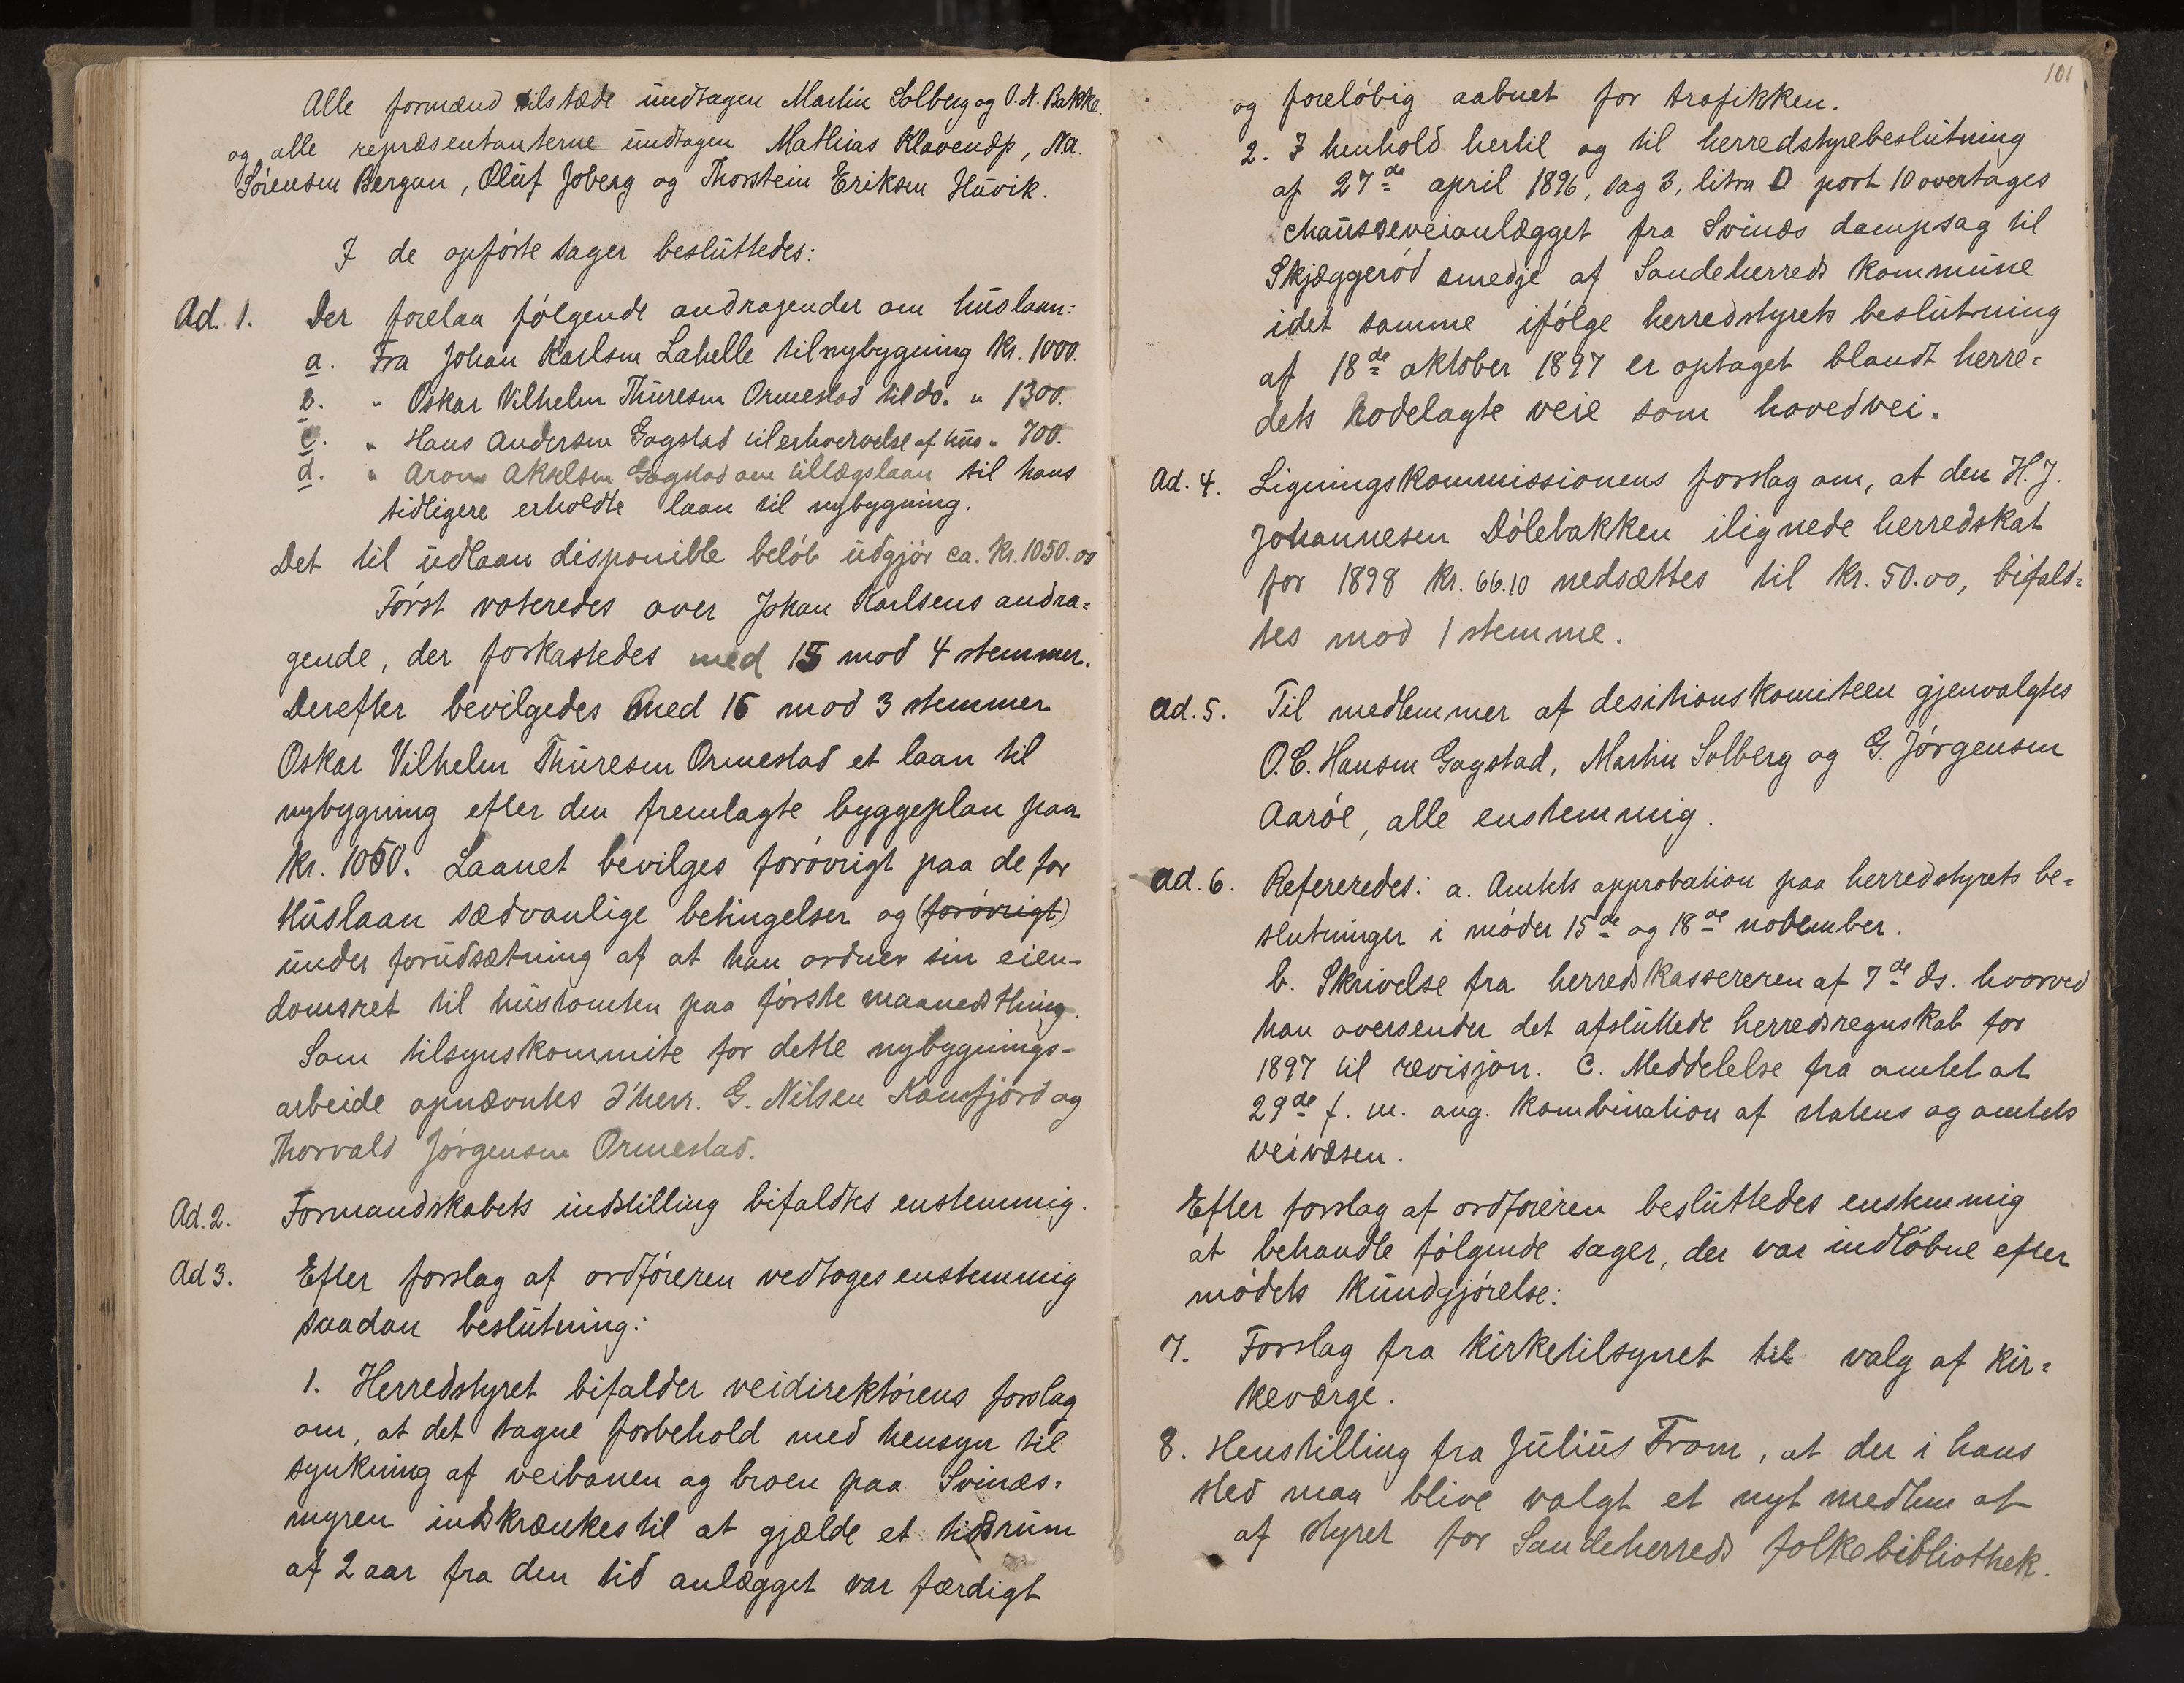 Alle formænd tilstæde undtagen Martin Solberg og O. N. Bakke
og alle repræsentanterne undtagen Mathias Klavendp, Na.
Sørensen Bergan, Oluf Joberg og Thorstein Eriksen Huvik.
I de opførte sager besluttedes:
Ad. 1. Der forelaa følgende andragender om huslaan:
a. Fra Johan Karlsen Lahelle til nybygning Kr. 1000.
b. " Oskar Vilhelm Thuresen Ormestad til do. " 1300.
c. " Hans Andersen Gogstad til erhvervelse af hus " 700.
d. " Aron Akselsen Gogstad om tillægslaan til hans
tidligere erholdte laan til nybygning.
Det til udlaan disponible beløb udgjør ca. Kr. 1050.00
Først voteredes over Johan Karlsens andra=
gende, der forkastedes med 15 mod 4 stemmer.
Derefter bevilgedes med 16 mod 3 stemmer
Oskar Vilhelm Thuresen Ormestad et laan til
nybygning efter den fremlagte byggeplan paa
Kr. 1050. Laanet bevilges forøvrigt paa de for
Huslaan sædvanlige betingelser og (forøvrigt)
under forudsætning af at han ordner sin eien-
domsret til hustomten paa første maanedsthing.
Som tilsynskommite for dette nybygnings-
arbeide opnævntes d'herr. G. Nilsen Kamfjord og
Thorvald Jørgensen Ormestad.
Ad. 2. Formandskabets indstilling bifaldtes enstemmig.
Ad 3. Efter forslag af ordføreren vedtoges enstemmig
saadan beslutning:
1. Herredstyret bifalder veidirektørens forslag
om, at det tagne forbehold med hensyn til
synkning af veibanen og broen paa Svinæs-
myren indskrænkes til at gjælde et tidsrum
af 2 aar fra den tid anlægget var færdigt
101
og foreløbig aabnet for trafikken.
2. I henhold hertil og til herredstyrebeslutning
af 27de april 1896, sag 3, litra D post 10 overtages
chausseveianlægget fra Svinæs dampsag til
Skjæggerød smedje af Sandeherreds kommune
idet samme ifølge herredstyrets beslutning
af 18de oktober 1897 er optaget blandt herre=
dets rodelagte veie som hovedvei.
Ad. 4. Ligningskommissionens forslag om, at den H. J.
Johannesen Dølebakken ilignede herredskat
for 1898 Kr. 66.10 nedsættes til Kr. 50.00, bifald=
tes mod 1 stemme.
Ad. 5. Til medlemmer af desitionskomiteen gjenvalgtes
O. C. Hansen Gogstad, Martin Solberg og G. Jørgensen
Aarøe, alle enstemmig.
Ad. 6. Refereredes: a. Amtets approbation paa herredstyrets be=
slutninger i møder 15de og 18de november.
b. Skrivelse fra herredskassereren af 7de ds. hvorved
han oversender det afsluttede herredsregnskab for
1897 til revisjon. c. Meddelelse fra amtet at
29de f. m. ang. kombination af statens og amtets
veivæsen.
Efter forslag af ordføreren besluttedes enstemmig
at behandle følgende sager, der var indløbne efter
mødets kundgjørelse:
7. Forslag fra kirketilsynet til valg af kir=
keværge.
8. Henstilling fra Julius From, at der i hans
sted maa blive valgt et nyt medlem af
af styret for Sandeherreds folkebibliothek.